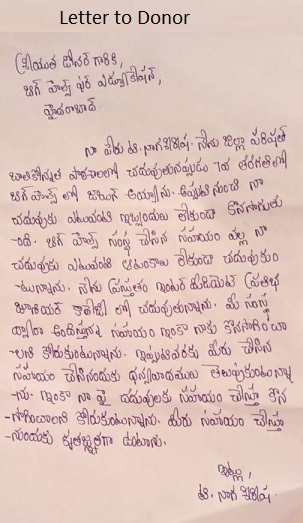 Letter to Donor
శ్రీయుత డోనర్ గారికి,
బిగ్ హెల్ప్ ఫర్ ఎడ్యుకేషన్,
హైదరాబాద్.
నా పేరు టి. నాగశిరీష. నేను జిల్లా పరిషత్
బాలికోన్నత పాఠశాలలో చదువుతున్నప్పుడు 7వ తరగతిలో
బిగ్ హెల్ప్ లో జాయిన్ అయ్యాను. అప్పటి నుంచి నా
చదువుకు ఎటువంటి ఇబ్బందులు లేకుండా కొనసాగుతు
-ంది. బిగ్ హెల్ప్ సంస్థ చేసిన సహాయం వల్ల నా
చదువుకు ఎటువంటి ఆటంకాలు లేకుండా చదువుకుం
-టున్నాను. నేను ప్రస్తుతం ఇంటర్ మీడియెట్ ప్రతిభ
జూనియర్ కాలేజీ లో చదువుతున్నాను. మీ సంస్థ
ద్వారా అందిస్తున్న సహాయం ఇంకా నాకు కొనసాగించా
-లని కోరుకుంటున్నాను. ఇప్పటివరకు మీరు చేసిన
సహాయం చేసినందుకు ధన్యవాదములు తెలుపుకుంటున్నా
-ను. ఇంకా నా పై చదువులకు సహాయం చేస్తూ కొన
-సాగించాలని కోరుకుంటున్నాను. మీరు సహాయం చేస్తూ
-న్నందుకు కృతజ్ఞతగా ఉంటాను.
ఇట్లు,
టి. నాగ శిరీష.